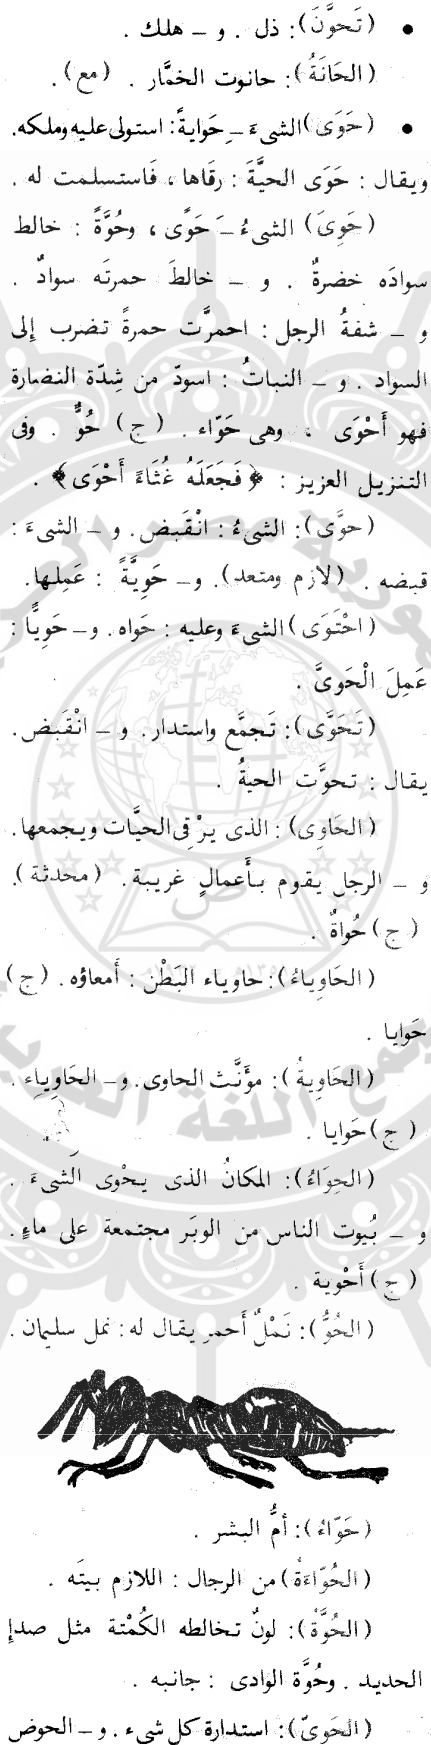 • (تَحوَّنَ): ذل . و ــ هلك .
(الحَانَةُ): حانوت الخمَّار . (مع) .
• (حَوَى) الشىءَ ــِ حَوايةً: استولى عليه وملكه.
ويقال : حَوَى الحيَّةَ : رقَاها ، فَاستسلمت له .
(حَوِىَ) الشىءُ ــَ حَوًى ، وحُوَّةً : خالط
سوادَه خضرةٌ . و ــ خالطَ حمرتَه سوادٌ .
و ــ شفةُ الرجل : احمرَّت حمرةً تضرب إلى
السواد . و ــ النباتُ : اسودّ من شِدّة النضارة
فهو أَحْوَى ، وهى حَوّاء . (ج) حُوٌّ . وفى
التنزيل العزيز : ﴿فَجَعَلَهُ غُثَاءً أَحْوَى﴾ .
(حوَّى): الشىءُ : انْقَبض. و ــ الشىءَ :
قبضه . (لازم ومتعد). و ــ حَوِيَّةً : عَمِلها.
(احْتَوَى) الشىءَ وعليه : حَواه. و ــ حَوِيًّا :
عَمِلَ الْحَوىَّ .
(تَحَوَّى): تَجمَّع واستدار. و ــ انْقَبض.
يقال : تحوَّت الحيةُ .
(الحَاوِى): الذى يرْقِى الحيَّات ويجمعها.
و ــ الرجل يقوم بأَعمالٍ غريبة. (محدثة).
(ج) حُواةٌ .
(الحَاوِياءُ): حاوياء البَطْن : أَمعاؤه. (ج)
حَوايا .
(الحَاوِيةُ): مؤنَّث الحاوى. و ــ الحَاوِياء .
(ج) حَوايا .
(الحِوَاءُ): المكانُ الذى يحْوى الشىءَ .
و ــ بُيوت الناس من الوبَر مجتمعة على ماءٍ.
(ج) أَحْوية .
(الحُوُّ): نَمْلٌ أَحمر يقال له : نمل سليمان .
(حَوّاءُ): أُمُّ البشر .
(الحُوّاءَةُ) من الرجال : اللازم بيتَه .
(الحُوَّةُ): لونٌ تخالطه الكُمْتة مثل صدإِ
الحديد . وحُوَّة الوادى : جانبه .
(الحَوِىّ): استدارة كل شىء . و ــ الحوض